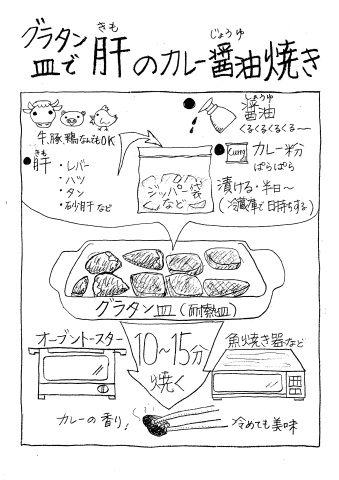 グラタン
皿で肝のカレー醤油焼き
きも
じょうゆ
牛、豚、鶏なんでもOK
きも
●肝
・レバー
・ハツ
・タン
・砂肝など
ジッパー袋
など
しょうゆ
●醤油
くるくるくるくる〜
Curry
●カレー粉
ぱらぱら
漬ける・半日〜
(冷蔵庫で日持ちする)
グラタン皿(耐熱皿)
オーブントースター
10〜15分
焼く
魚焼き器など
カレーの香り!
冷めても美味